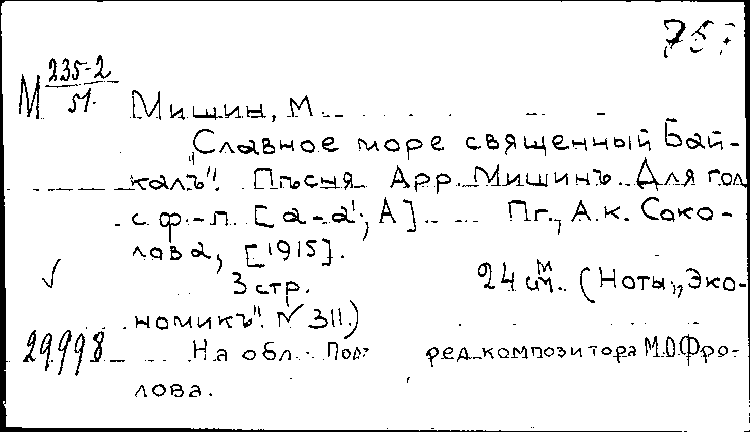 М 235-2
51.
Мишин, М.
„Славное море священный Бай-
калъ". Пѣсня Арр. Мишинъ. Для гол
с ф.-п. [a-a¹; A] Пг., А.К. Соко-
лова, [1915].
3 стр. 24 см. (Ноты „Эко-
номикъ". N 311.)
29.998 На обл. Подъ ред. композитора М.О. Фро-
лова.